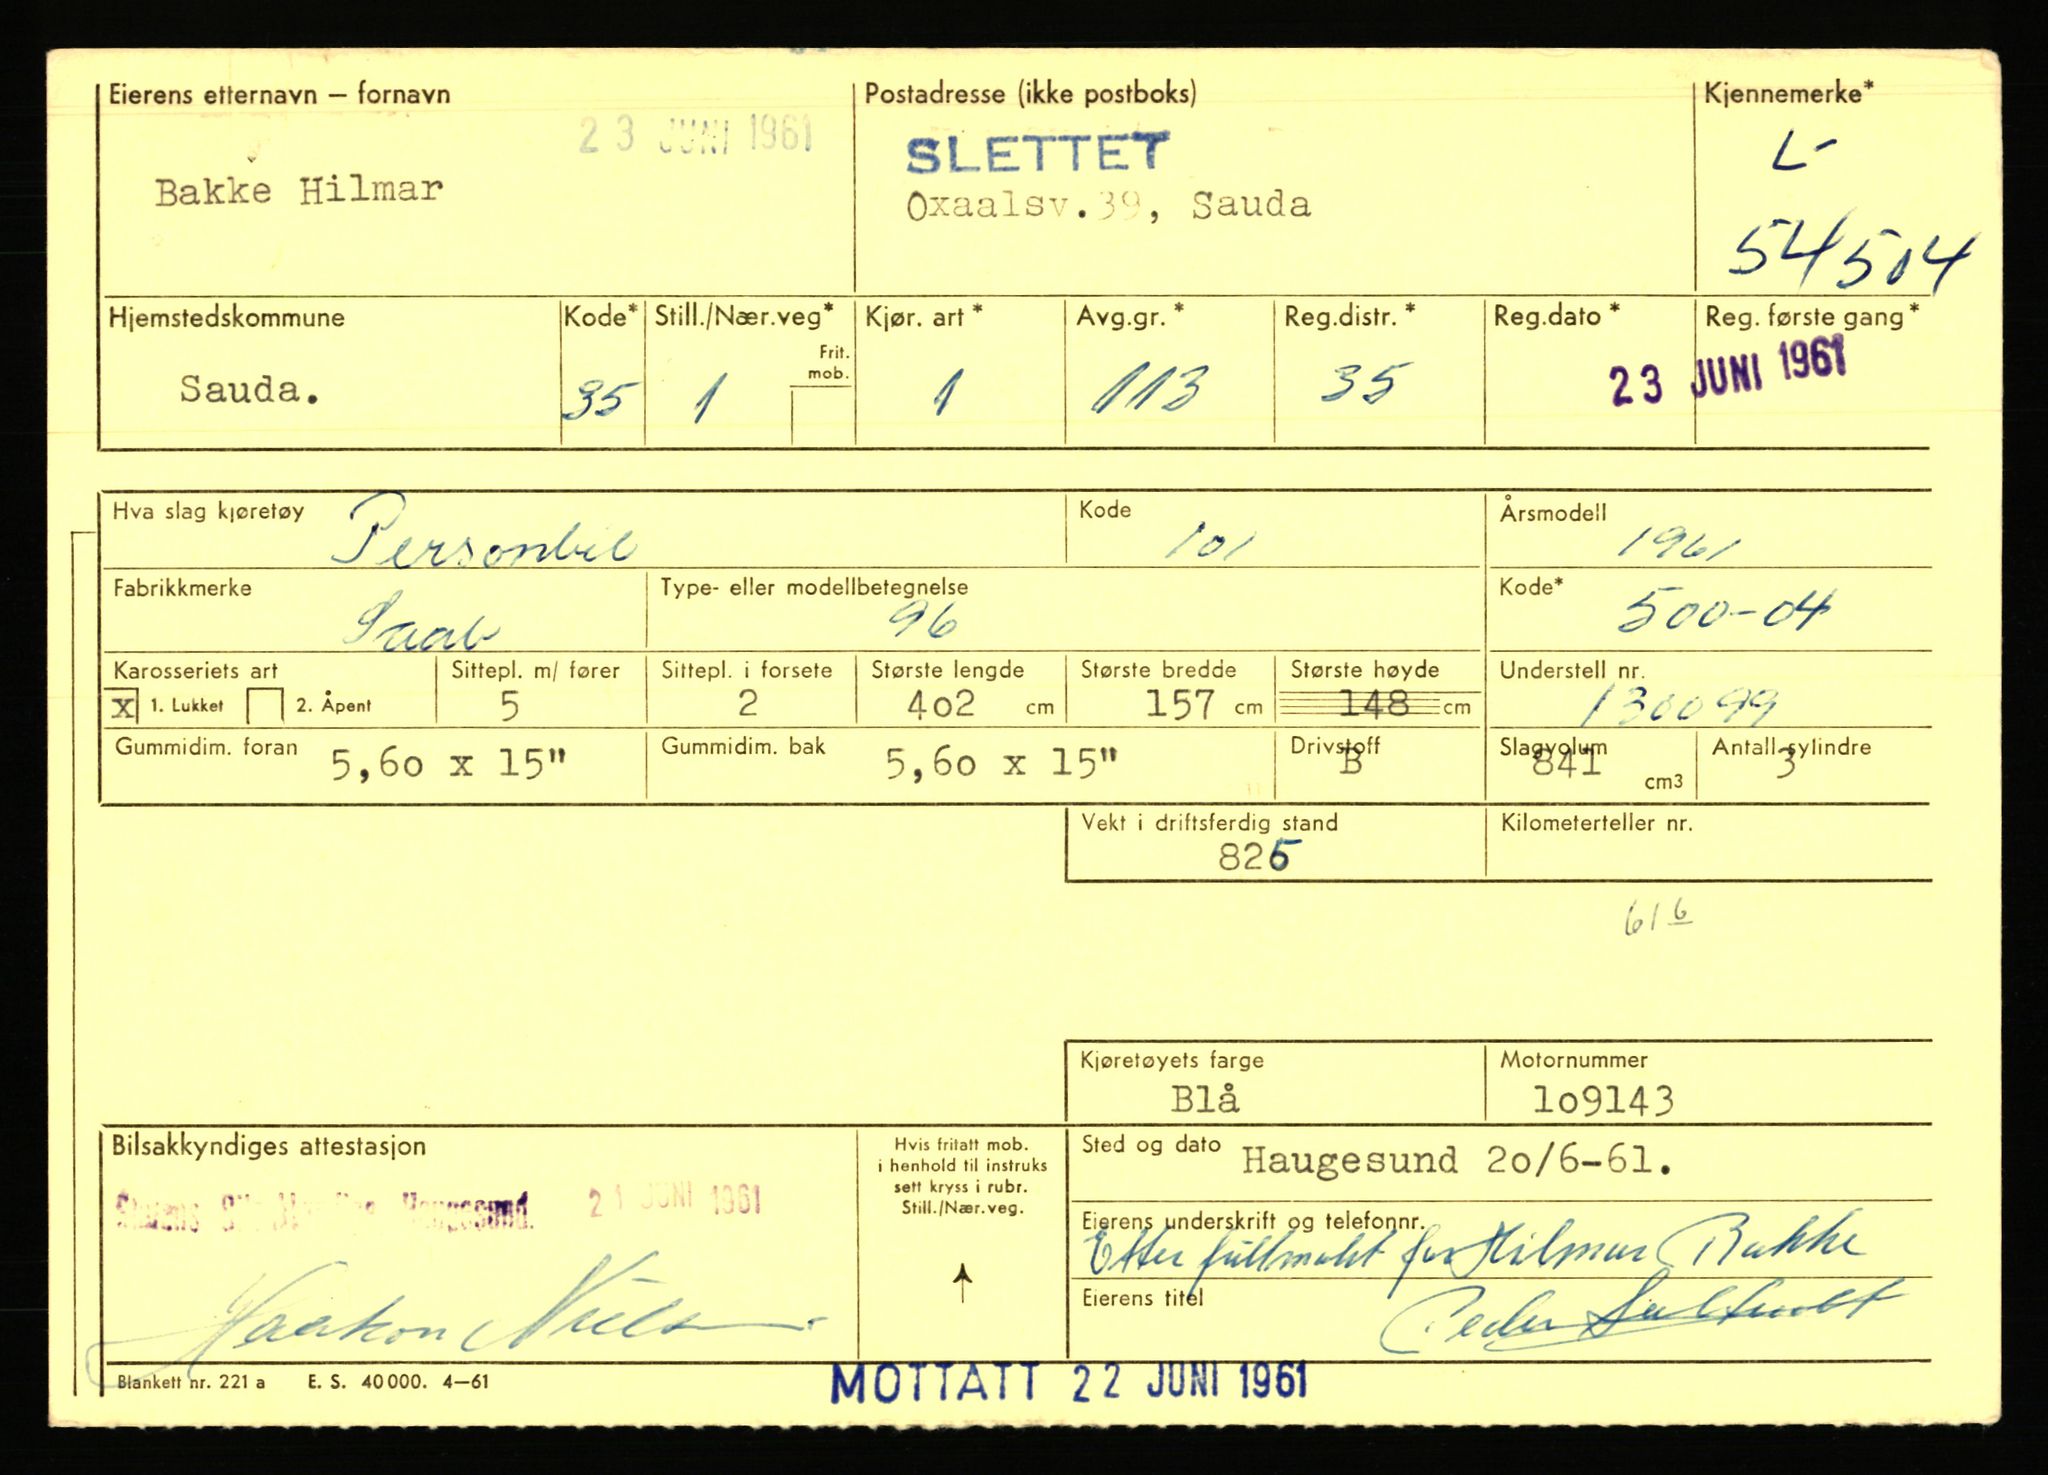 Eierens etternavn – fornavn
Postadresse (ikke postboks)
Kjennemerke*
23 JUNI 1961
SLETTET
L-
Bakke Hilmar
Oxaalsv.39, Sauda
54504
Hjemstedskommune
Kode*
Still./Nær.veg*
Kjør. art *
Avg.gr. *
Reg.distr. *
Reg.dato *
Reg. første gang*
Frit.
mob.
Sauda.
35
1
1
113
35
23 JUNI 1961
Hva slag kjøretøy
Personbil
Kode
101
Årsmodell
1961
Fabrikkmerke
Saab
Type- eller modellbetegnelse
96
Kode*
500-04
Karosseriets art
Sittepl. m/ fører
Sittepl. i forsete
Største lengde
Største bredde
Største høyde
Understell nr.
X 1. Lukket
2. Åpent
5
2
402 cm
157 cm
148 cm
130099
Gummidim. foran
5,60 x 15"
Gummidim. bak
5,60 x 15"
Drivstoff
B
Slagvolum
841
cm3
Antall sylindre
3
Vekt i driftsferdig stand
825
Kilometerteller nr.
61 6
Kjøretøyets farge
Blå
Motornummer
109143
Bilsakkyndiges attestasjon
Statens Haugesund. 21 JUNI 1961
Haakon
Hvis fritatt mob.
i henhold til instruks
sett kryss i rubr.
Still./Nær.veg.
Sted og dato
Haugesund 20/6-61.
Eierens underskrift og telefonnr.
Etter fullmakt for Hilmar Bakke
Eierens titel
Peder
Blankett nr. 221 a E. S. 40 000. 4–61
MOTTATT 22 JUNI 1961